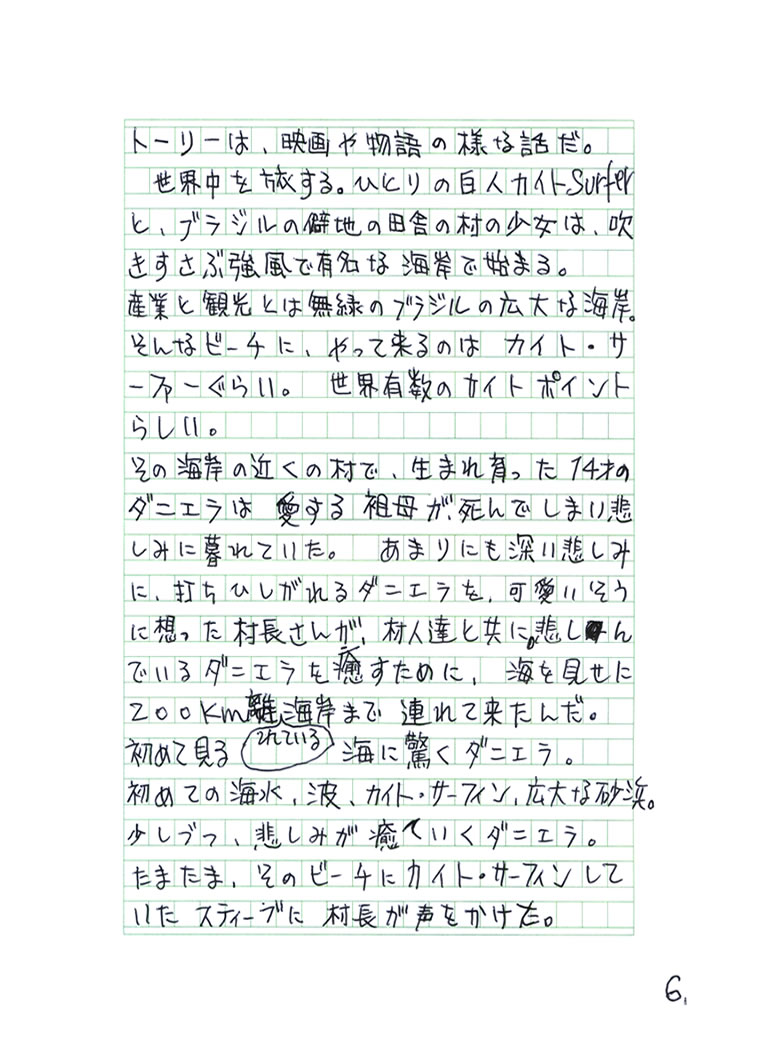 トーリーは、映画や物語の様な話だ。
世界中を旅する。ひとりの白人カイトSurfer
と、ブラジルの僻地の田舎の村の少女は、吹
きすさぶ強風で有名な海岸で始まる。
産業と観光とは無縁のブラジルの広大な海岸。
そんなビーチに、やって来るのはカイト・サ
ーファーぐらい。世界有数のカイトポイント
らしい。
その海岸の近くの村で、生まれ育った14才の
ダニエラは愛する祖母が、死んでしまい悲
しみに暮れていた。あまりにも深い悲しみ
に、打ちひしがれるダニエラを、可愛いそう
に想った村長さんが、村人達と共に、悲しん
でいるダニエラを癒すために、海を見せに
200Km離れている海岸まで連れて来たんだ。
初めて見る海に驚くダニエラ。
初めての海水、波、カイト・サーフィン、広大な砂浜。
少しづつ、悲しみが癒ていくダニエラ。
たまたま、そのビーチにカイト・サーフィンして
いたスティーブに村長が声をかけた。
6.